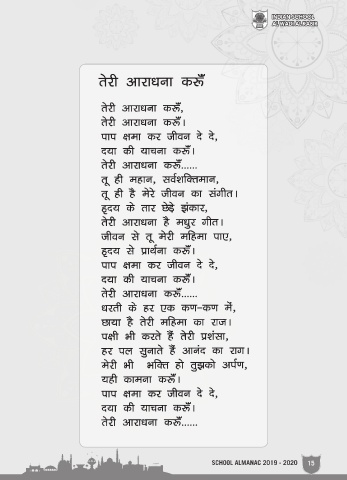 INDIAN SCHOOL
AL WADI AL KABIR
तेरी आराधना करूँ
तेरी आराधना करूँ,
तेरी आराधना करूँ।
पाप क्षमा कर जीवन दे दे,
दया की याचना करूँ।
तेरी आराधना करूँ......
तू ही महान, सर्वशक्तिमान,
तू ही है मेरे जीवन का संगीत।
हृदय के तार छेड़े झंकार,
तेरी आराधना है मधुर गीत।
जीवन से तू मेरी महिमा पाए,
हृदय से प्रार्थना करूँ।
पाप क्षमा कर जीवन दे दे,
दया की याचना करूँ।
तेरी आराधना करूँ......
धरती के हर एक कण-कण में,
छाया है तेरी महिमा का राज।
पक्षी भी करते हैं तेरी प्रशंसा,
हर पल सुनाते हैं आनंद का राग।
मेरी भी भक्ति हो तुझको अर्पण,
यही कामना करूँ।
पाप क्षमा कर जीवन दे दे,
दया की याचना करूँ।
तेरी आराधना करूँ......
SCHOOL ALMANAC 2019 - 2020 15